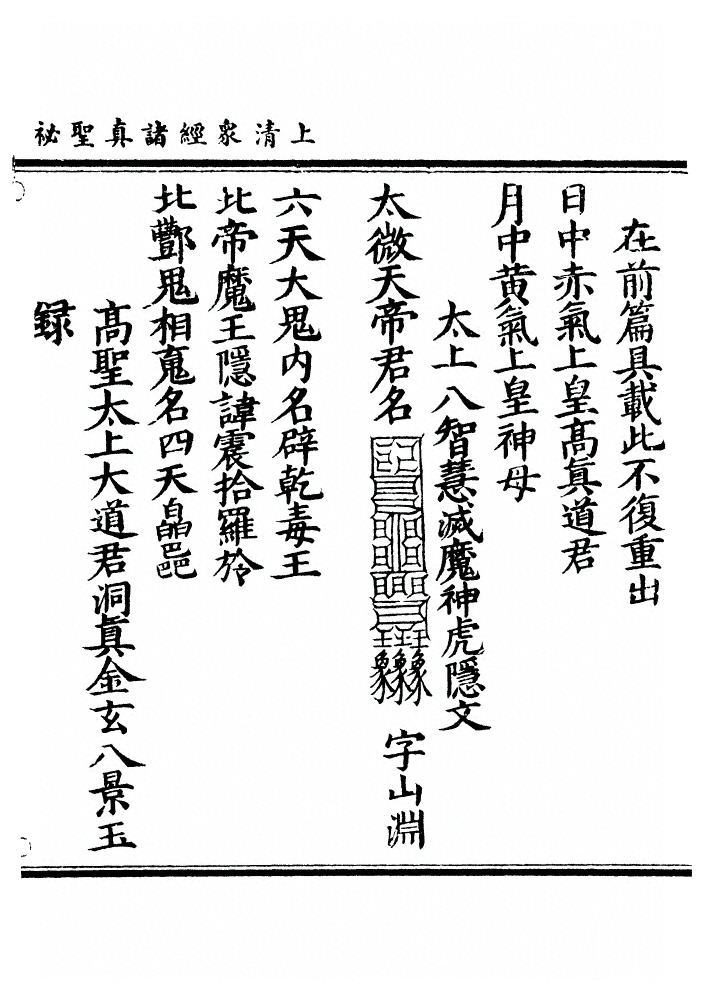 上清衆經諸真聖祕
在前篇具載此不復重出
日中赤氣上皇高眞道君
月中黄氣上皇神母
太上八智慧滅魔神虎隱文
太微天帝君名 字山淵
六天大鬼内名辟乾毒王
北帝魔王隱諱震拾羅於
北酆鬼相鬼名四天皛
高聖太上大道君洞眞金玄八景玉
録